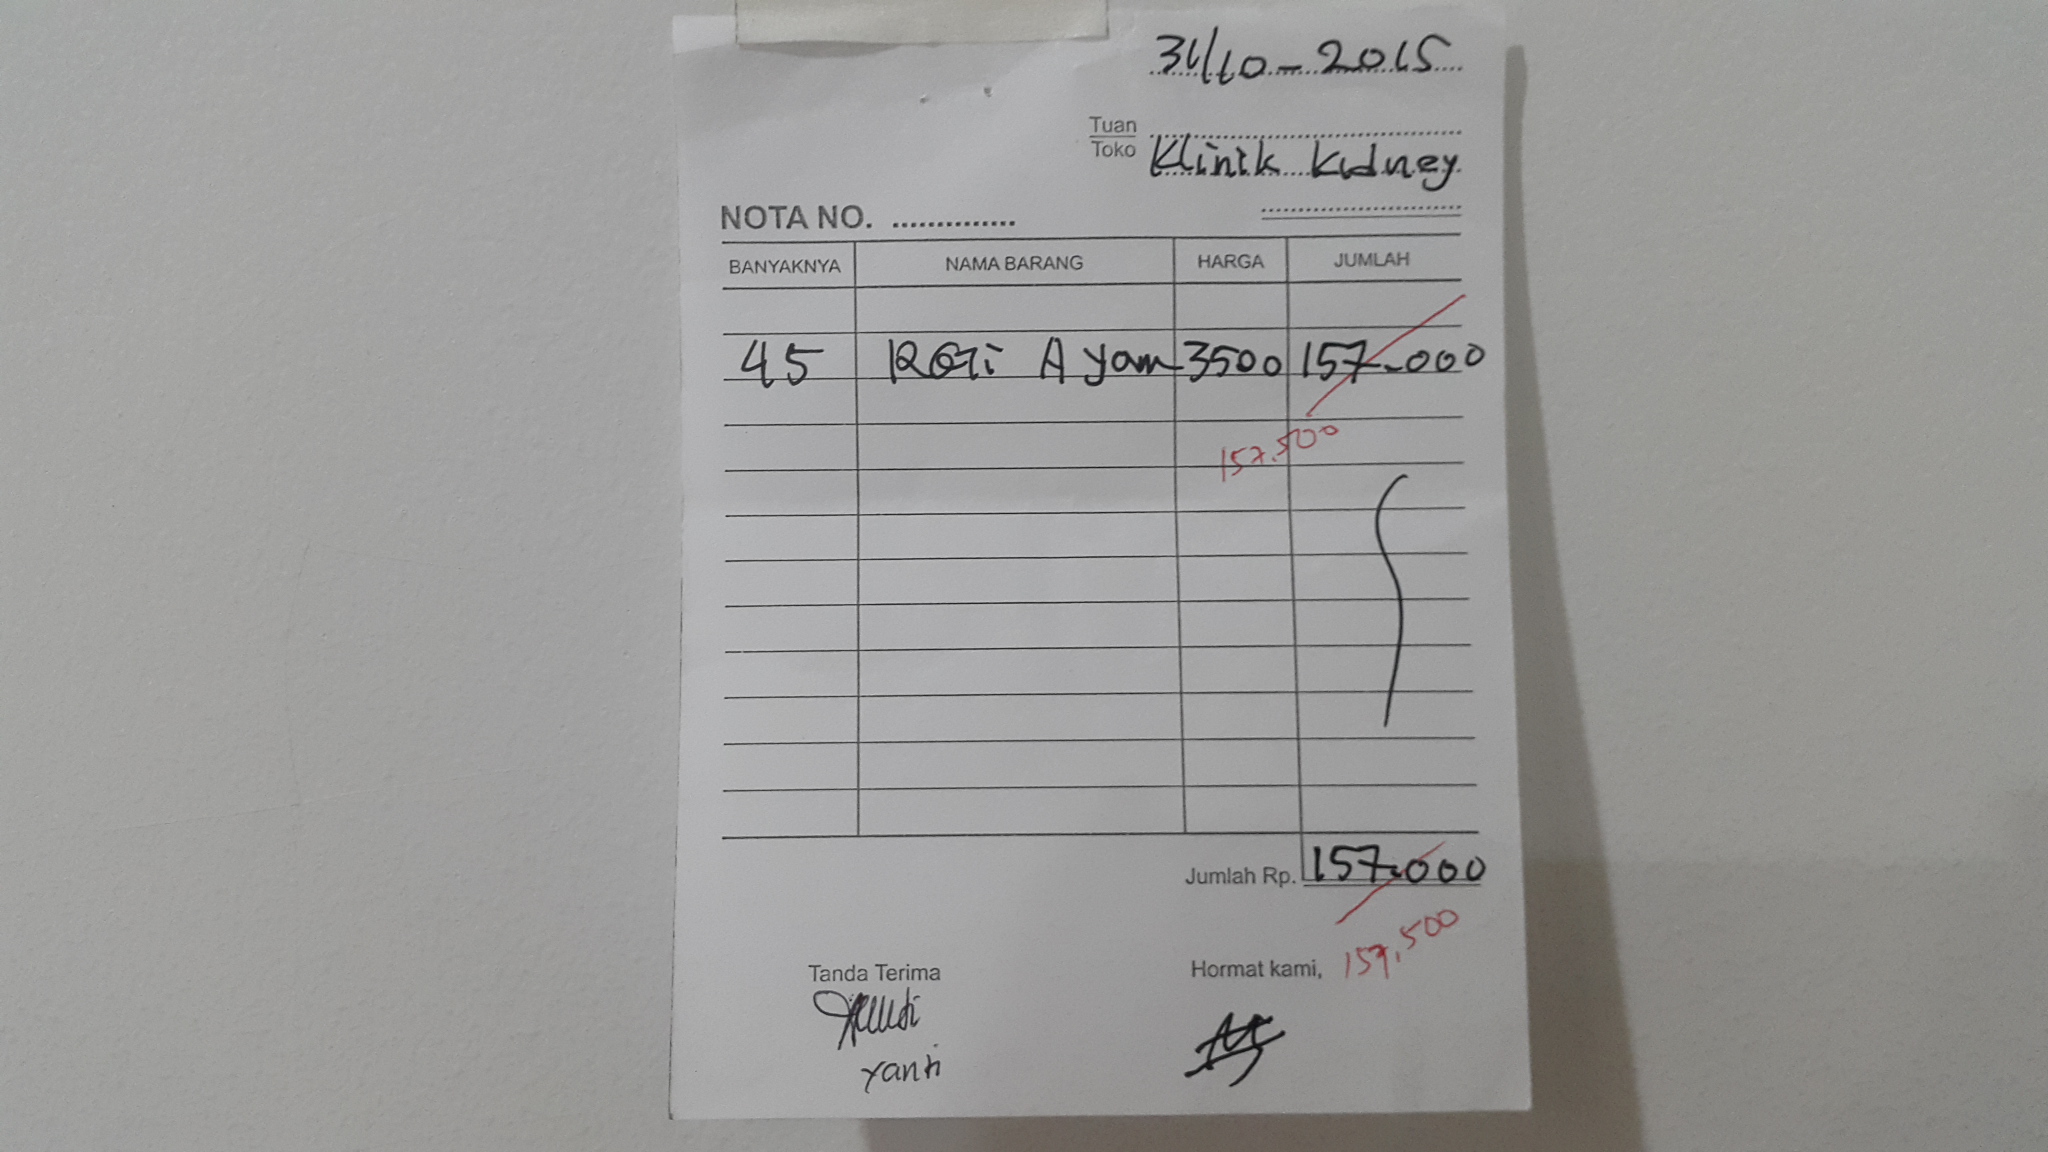 31/10-2015
Tuan
Toko Klinik Kidney
NOTA NO. ..............
BANYAKNYA NAMA BARANG HARGA JUMLAH
45 Roti Ayam 3500 157.000
157.500
Jumlah Rp. 157.000
Tanda Terima Hormat kami, 157.500
Yanti